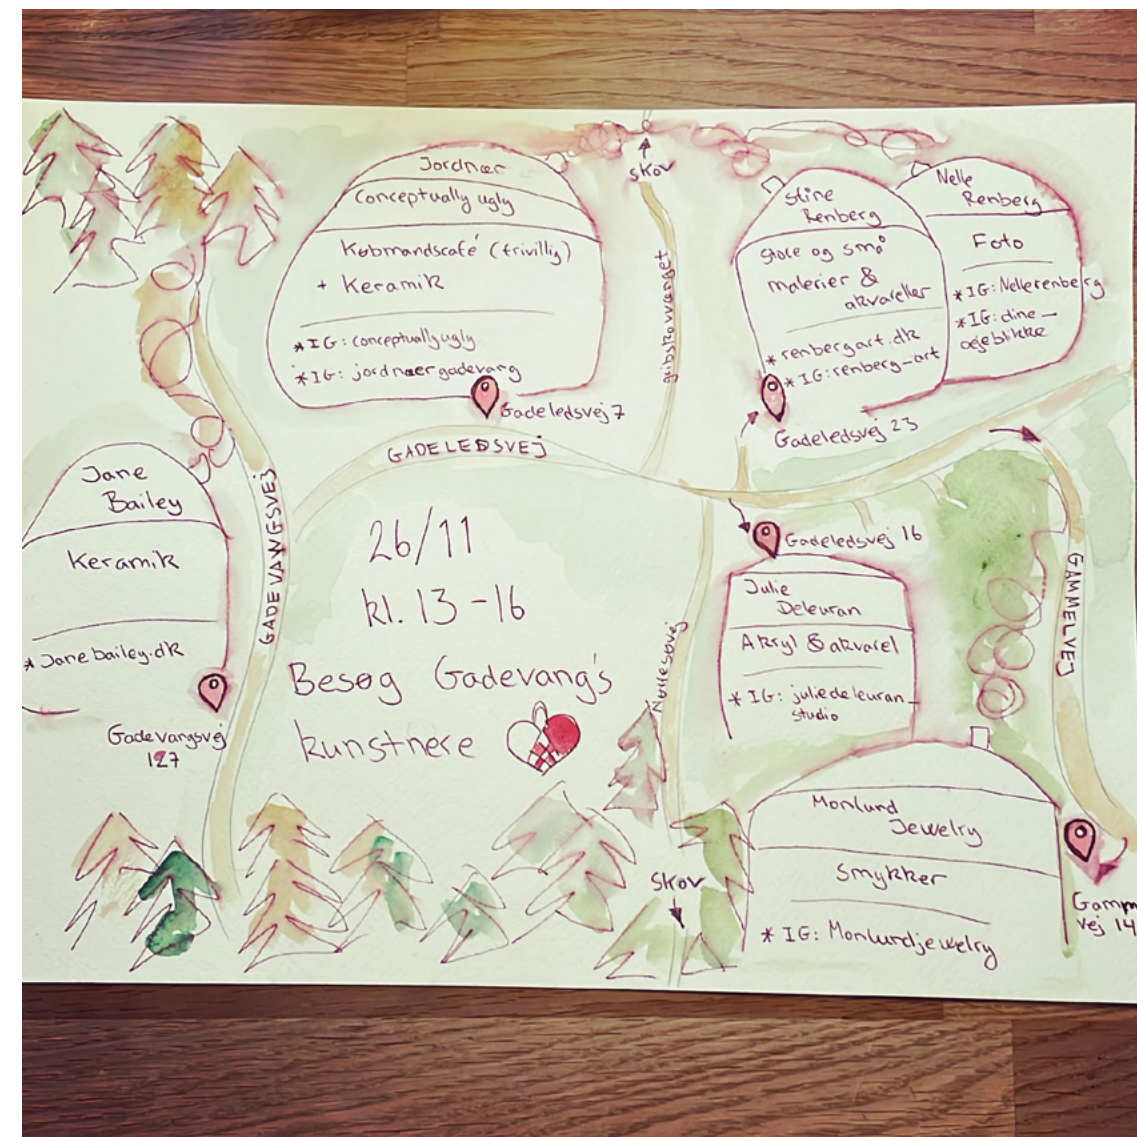 Jordnær
Conceptually ugly
Købmandscafé (frivillig)
+ Keramik
* IG: conceptuallyugly
* IG: jordnaergadevang
Gadeledsvej 7
skov
gribskovvænget
Stine
Renberg
Store og små
malerier &
akvareller
* renbergart.dk
* IG: renberg_art
Gadeledsvej 23
Nelle
Renberg
Foto
* IG: Nellerenberg
* IG: dine_
oejeblikke
GADELEDSVEJ
Jane
Bailey
Keramik
* Janebailey.dk
Gadevangsvej
127
GADEVANGSVEJ
26/11
kl. 13-16
Besøg Gadevang's
kunstnere
Gadeledsvej 16
Julie
Deleuran
Akryl & akvarel
* IG: juliedeleuran_
studio
GAMMELVEJ
Skov
Monlund
Jewelry
Smykker
* IG: Monlundjewelry
Gamm
vej 14